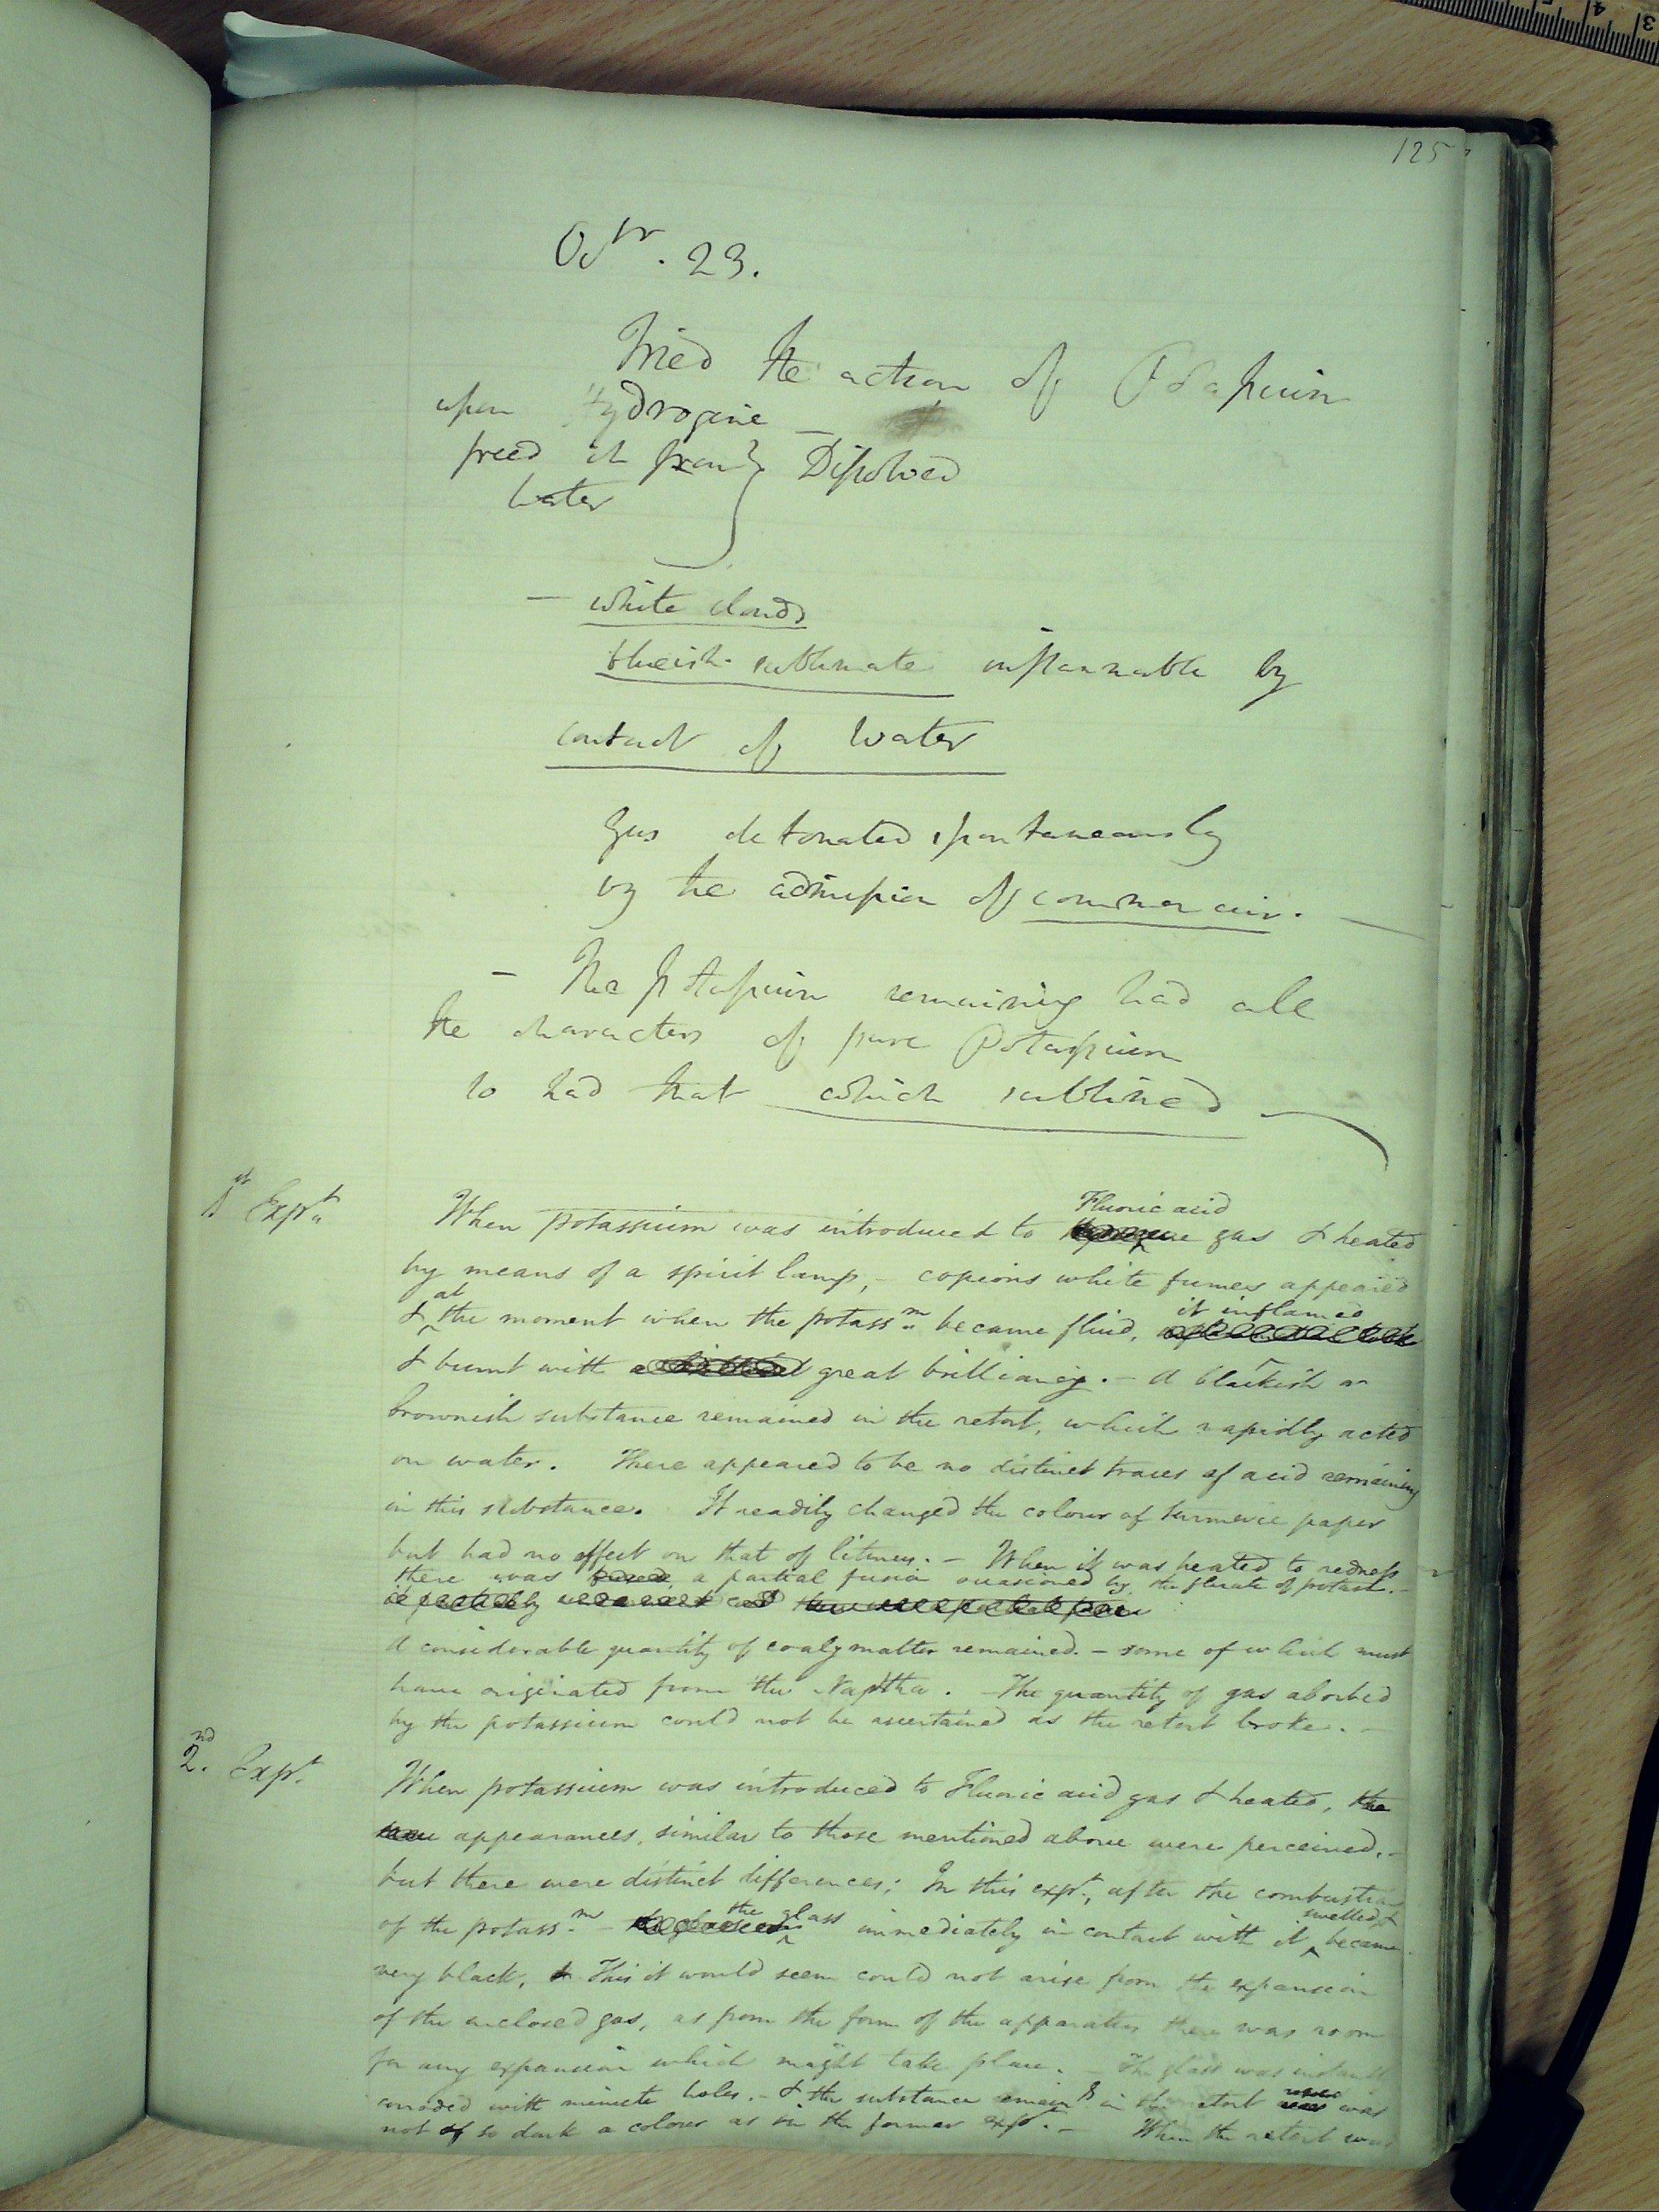 125
Octr. 23.
Tried the action of Potassium
upon Hydrogene —
freed it from } Dissolved
water
— white clouds
blueish sublimate inflammable by
contact of water
Gas detonated spontaneously
by the admission of common air. —
— The potassium remaining had all
the characters of pure Potassium
so had that which sublimed —
1st Expt.
When potassium was introduced to Fluoric acid gas & heated
by means of a spirit lamp, – copious white fumes appeared
& at the moment when the potassm. became fluid, it inflamed
& burnt with great brilliancy. – A blackish or
brownish substance remained in the retort, which rapidly acted
on water. There appeared to be no distinct traces of acid remaining
in this substance. It readily changed the colour of turmeric paper
but had no effect on that of litmus. – When it was heated to redness
there was a partial fusion occasioned by the fluate of potash. –
A considerable quantity of coaly matter remained. – some of which must
have originated from the Naptha. – The quantity of gas absorbed
by the potassium could not be ascertained as the retort broke. –
2nd. Expt.
When potassium was introduced to Fluoric acid gas & heated, the
same appearances, similar to those mentioned above were perceived, –
but there were distinct differences; In this expt., after the combustion
of the potassm. – the glass immediately in contact with it swelled & became
very black, This it would seem could not arise from the expansion
of the enclosed gas, as from the form of the apparatus there was room
for any expansion which might take place. The glass was
corroded with minute holes. – & the substance remaing in the retort was
not of so dark a colour as in the former expt. – When the retort was
3 4 5